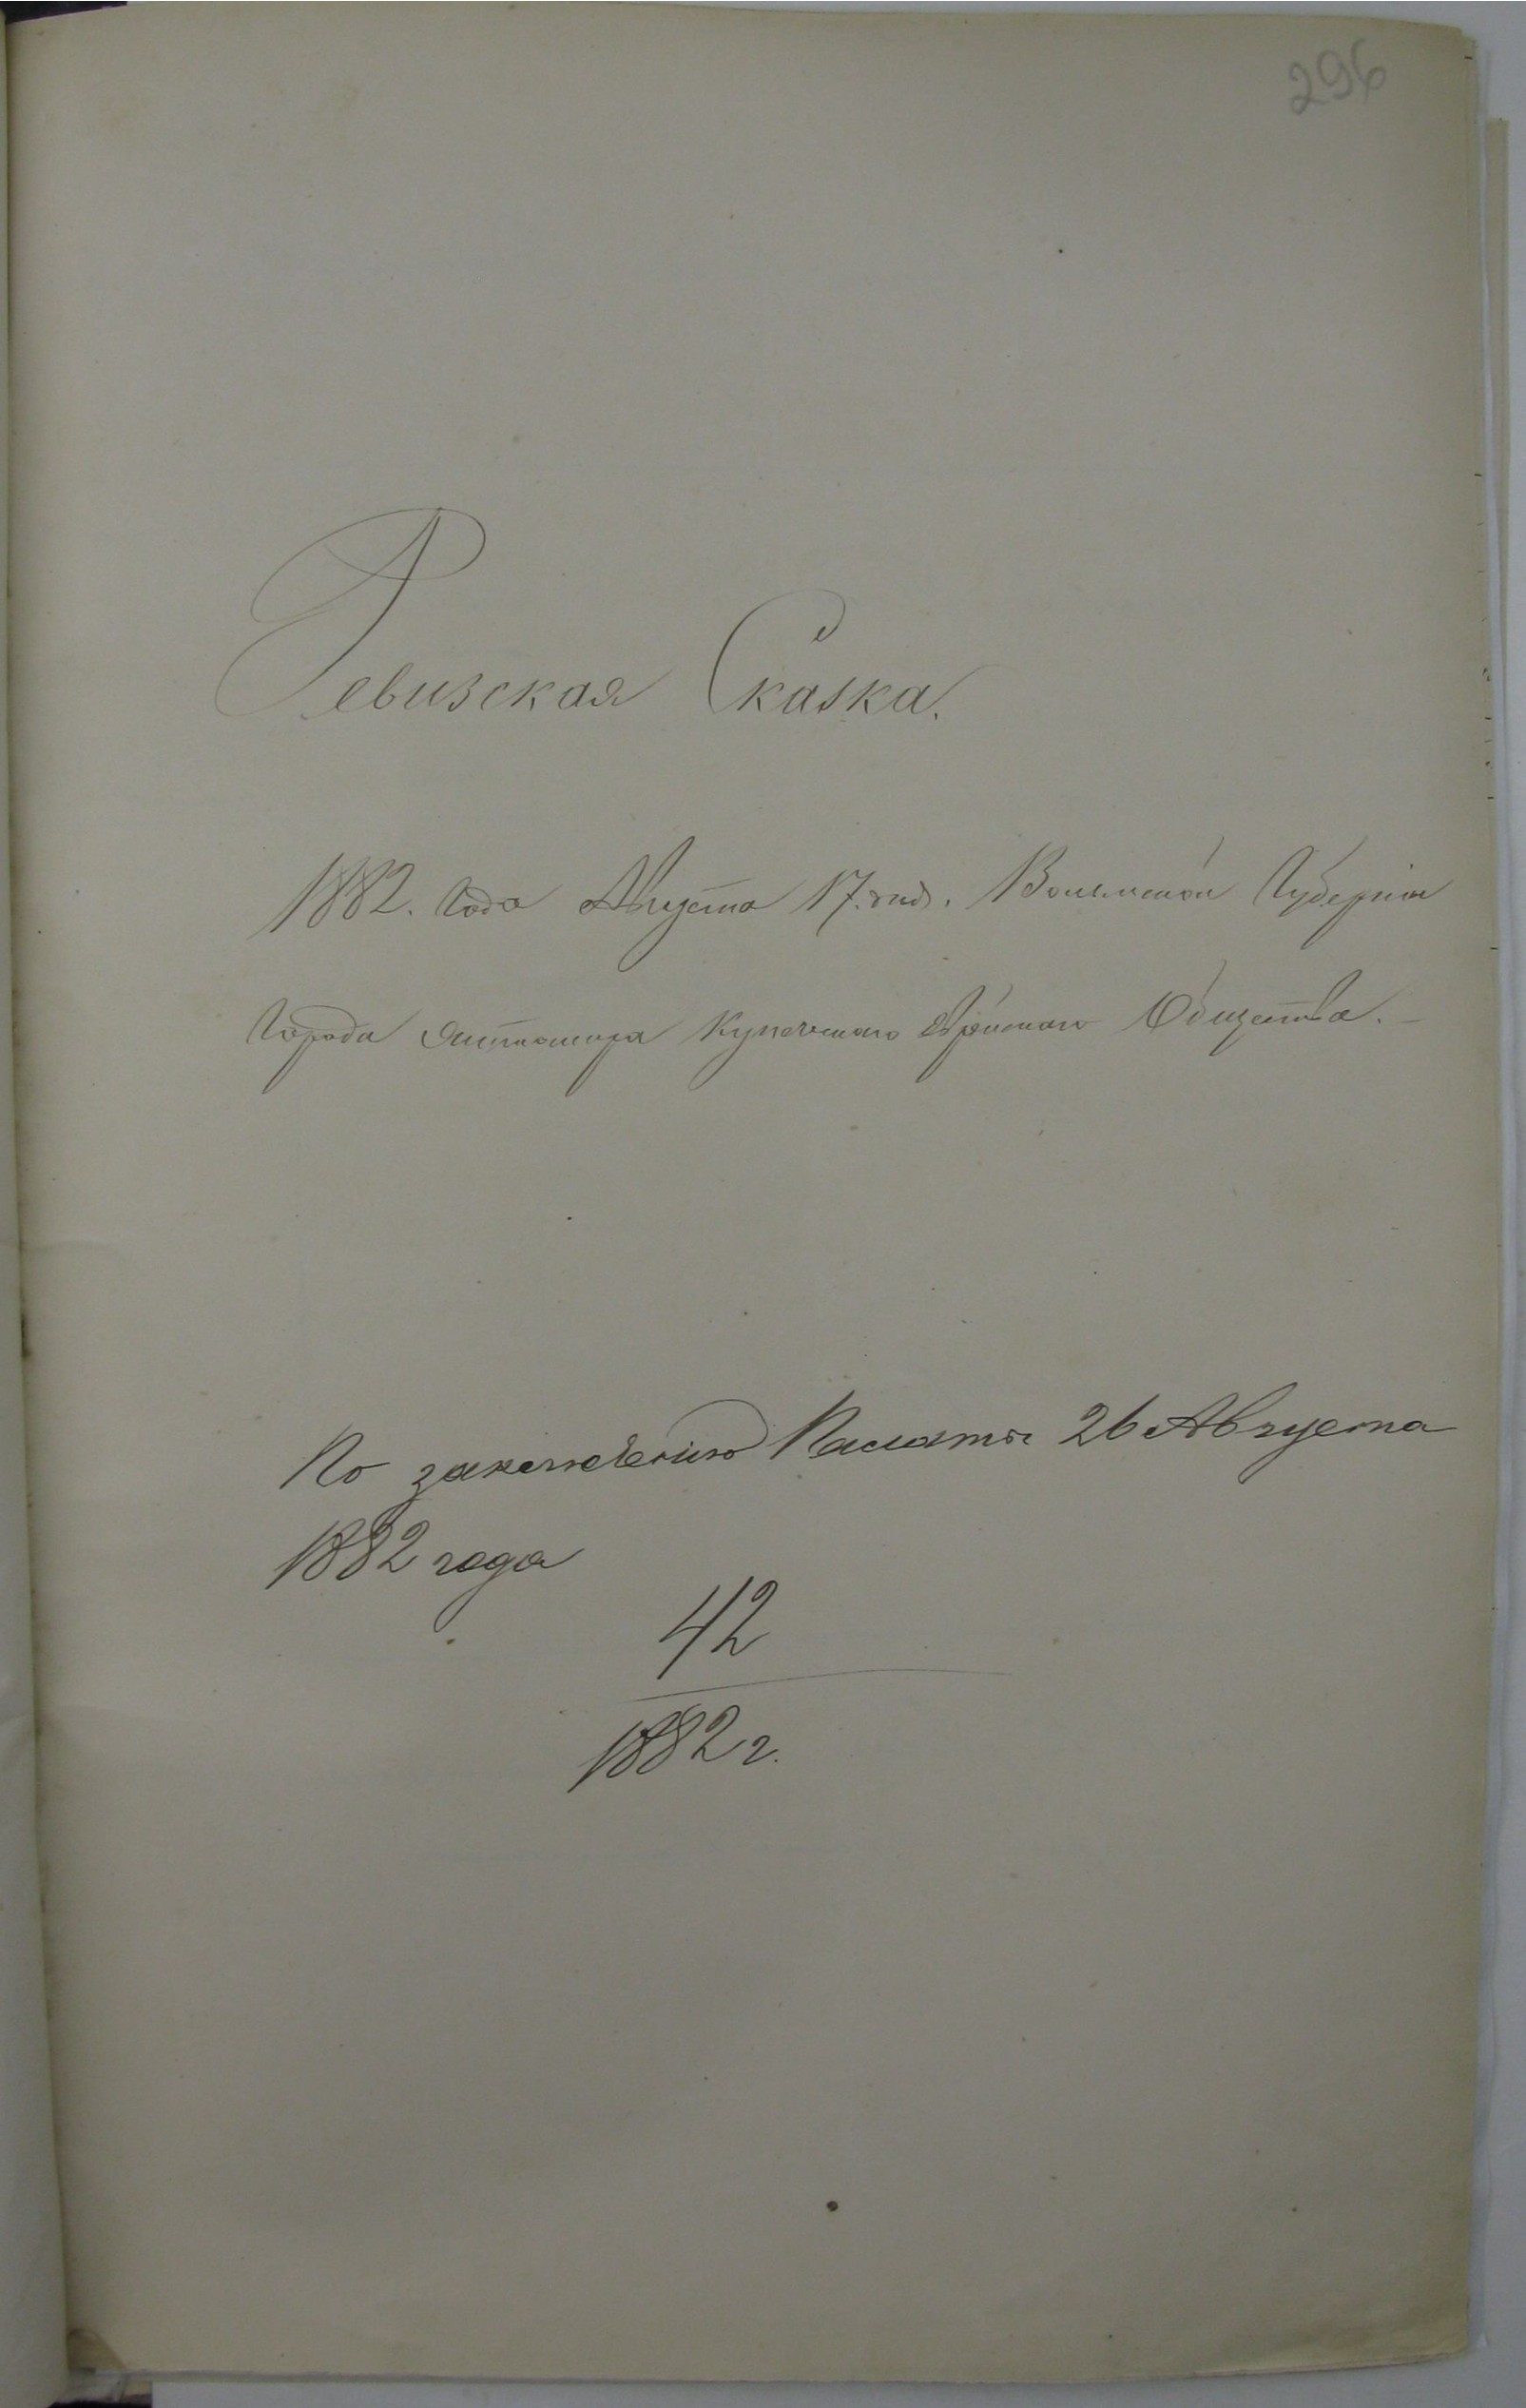 296
Ревизская Сказка.
1882. Года Августа 17. дня. Волынской Губернии
Города Житомира Купеческаго Еврейскаго Общества. –
По заключенію Палаты 26 Августа
1882 года
42
1882 г.